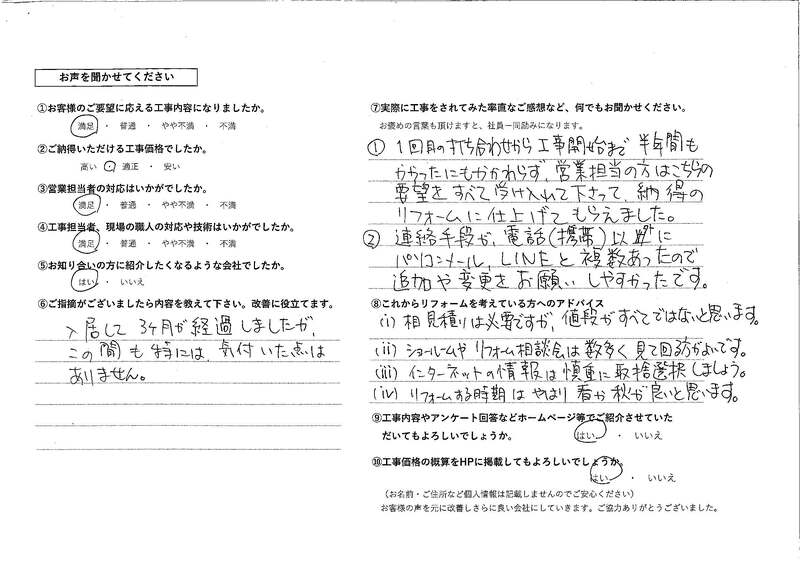 お声を聞かせてください
①お客様のご要望に応える工事内容になりましたか。
満足 ・ 普通 ・ やや不満 ・ 不満
②ご納得いただける工事価格でしたか。
高い ・ 適正 ・ 安い
③営業担当者の対応はいかがでしたか。
満足 ・ 普通 ・ やや不満 ・ 不満
④工事担当者、現場の職人の対応や技術はいかがでしたか。
満足 ・ 普通 ・ やや不満 ・ 不満
⑤お知り合いの方に紹介したくなるような会社でしたか。
はい ・ いいえ
⑥ご指摘がございましたら内容を教えて下さい。改善に役立てます。
入居して3ヶ月が経過しましたが、
この間も特には、気付いた点は
ありません。
⑦実際に工事をされてみた率直なご感想など、何でもお聞かせください。
お褒めの言葉も頂けますと、社員一同励みになります。
① 1回目の打ち合わせから工事開始まで半年間も
かかったにもかかわらず、営業担当の方はこちらの
要望をすべて受け入れて下さって、納得の
リフォームに仕上げてもらえました。
② 連絡手段が、電話(携帯)以外に
パソコンメール、LINEと複数あったので
追加や変更をお願いしやすかったです。
⑧これからリフォームを考えている方へのアドバイス
(i) 相見積りは必要ですが、値段がすべてではないと思います。
(ii) ショールームやリフォーム相談会は数多く見て回る方がよいです。
(iii) インターネットの情報は慎重に取捨選択しましょう。
(iv) リフォームする時期はやはり春か秋が良いと思います。
⑨工事内容やアンケート回答などホームページ等でご紹介させていた
だいてもよろしいでしょうか。 はい ・ いいえ
⑩工事価格の概算をHPに掲載してもよろしいでしょうか。
はい ・ いいえ
（お名前・ご住所など個人情報は記載しませんのでご安心ください）
お客様の声を元に改善しさらに良い会社にしていきます。ご協力ありがとうございました。